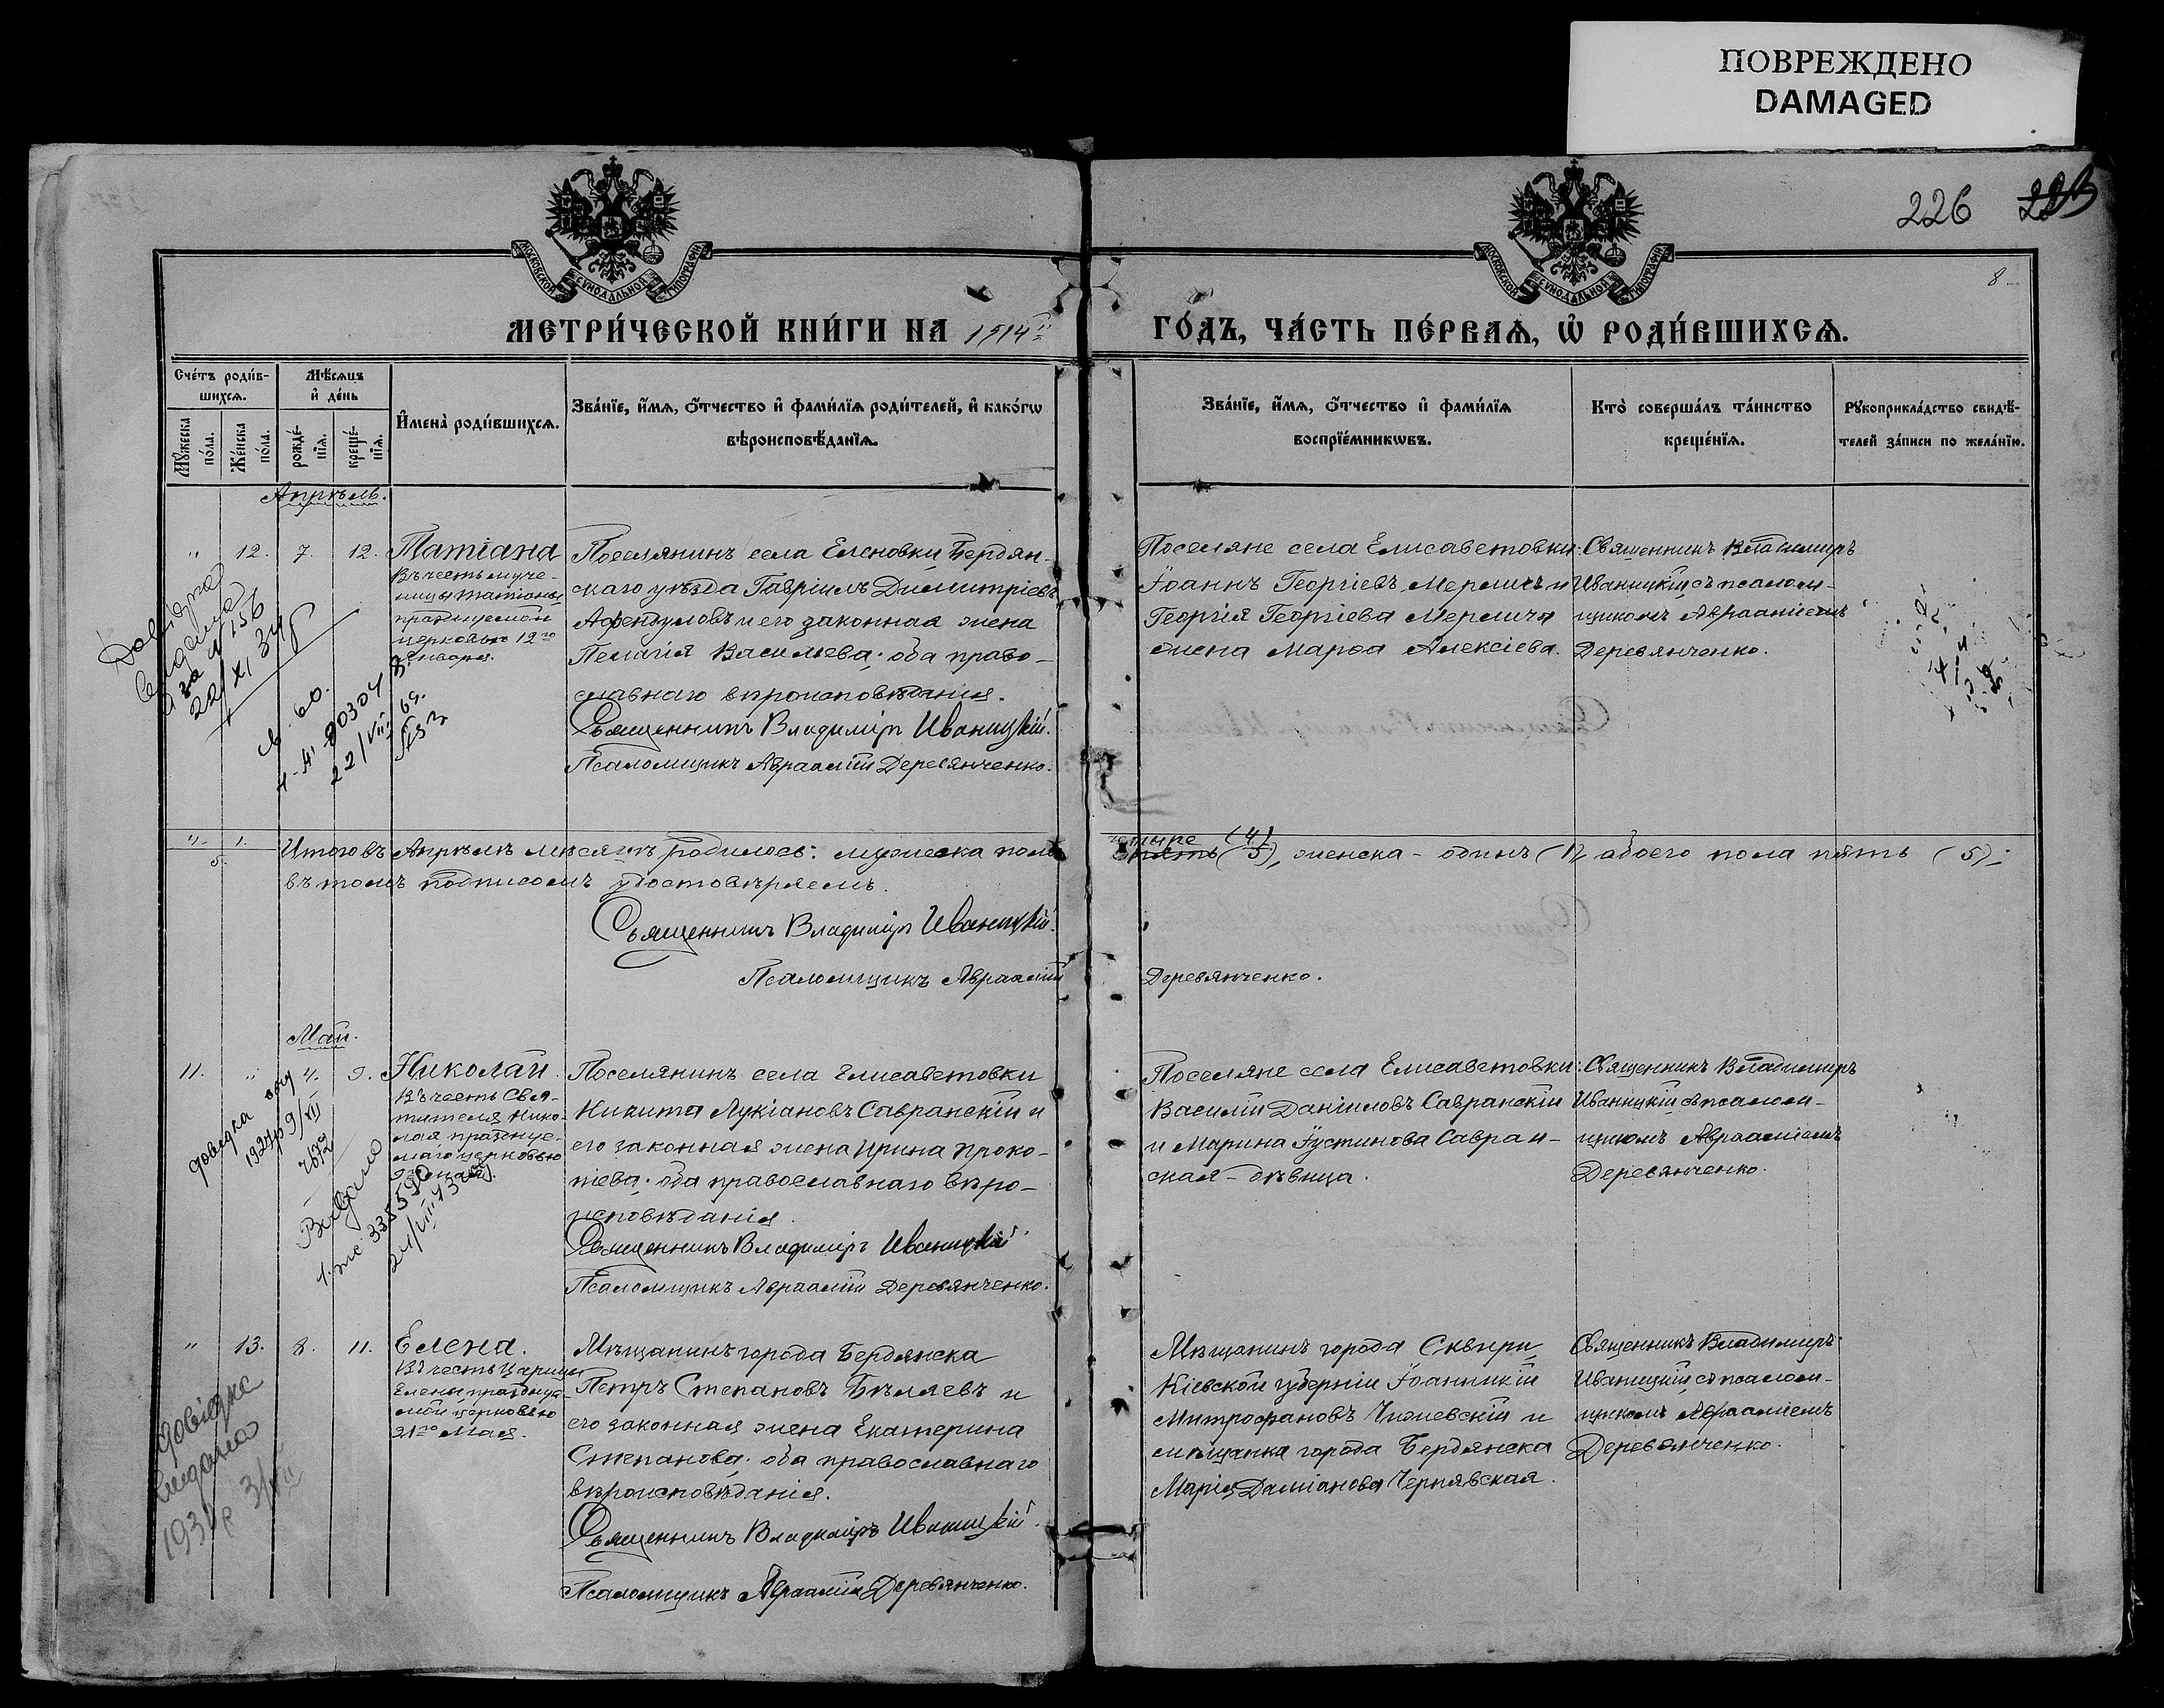 ПОВРЕЖДЕНО
DAMAGED
226
8
МОСКОВСКОЙ СѴНОДАЛЬНОЙ ТИПОГРАФІИ
МОСКОВСКОЙ СѴНОДАЛЬНОЙ ТИПОГРАФІИ
МЕТРИ́ЧЕСКОЙ КНИ́ГИ НА 1914й
ГО́ДЪ, ЧА́СТЬ ПЕ́РВАѦ, Ѡ҆ РОДИ́ВШИХСѦ.
Сче́тъ роди́в-
шихсѧ.
Мѣ́сѧцъ
и҆ де́нь
Мꙋ́жеска
по́ла.
Же́нска
по́ла.
рожде́-
нїѧ.
креще́-
нїѧ.
И҆мена̀ роди́вшихсѧ.
Зва́нїе, и҆́мѧ, ѻ҆́тчество и҆ фами́лїѧ роди́телей, и҆ како́гѡ
вѣроисповѣ́данїѧ.
Зва́нїе, и҆́мѧ, ѻ҆́тчество и҆ фами́лїѧ
воспрїе́мникѡвъ.
Кто̀ соверша́лъ та́инство
креще́нїѧ.
Рꙋкоприкла́дство свидѣ́-
телей за́писи по жела́нїю.
Апрѣль.
" 12. 7. 12. Татіана
Въ честь муче-
ницы Татіаны
празднуемой
церковью 12го
Января.
Поселянинъ села Еленовки Бердян-
скаго уѣзда Гавріилъ Димитріевъ
Афендуловъ и его законная жена
Пелагія Васильева; оба право-
славнаго вѣроисповѣданія.
Священникъ Владиміръ Иваницкій.
Псаломщикъ Авраамій Деревянченко.
Поселяне села Елисаветовки:
Іоаннъ Георгіевъ Мерличъ и
Георгія Георгіева Мерлича
жена Марѳа Алексіева.
Священникъ Владиміръ
Иваницкій съ псалом-
щикомъ Авраамиемъ
Деревянченко.
за № 156
22/XI 34
80304
22/VII 69.
". 1.
5.
Итого въ Апрѣлѣ мѣсяцѣ родилось: мужеска пола
четыре (4)
пять (5), женска - одинъ (1), обоего пола пять (5);
въ томъ подписомъ удостовѣряемъ.
Священникъ Владиміръ Иваницкій.
Псаломщикъ Авраамій Деревянченко.
Май.
11. " 4. 9. Николай
Въ честь Свя-
тителя Нико-
лая празднуе-
маго церковью
9го Мая.
Поселянинъ села Елисаветовки
Никита Лукіановъ Савранскій и
его законная жена Ирина Проко-
піева; оба православнаго вѣро-
исповѣданія.
Священникъ Владиміръ Иваницкій
Псаломщикъ Авраамій Деревянченко.
Поселяне села Елисаветовки:
Василій Даніиловъ Савранскій
и Марина Іустинова Савран-
ская - дѣвица.
Священникъ Владиміръ
Иваницкій съ псалом-
щикомъ Авраамиемъ
Деревянченко.
довідка
Видано
" 13. 8. 11. Елена.
Въ честь Царицы
Елены празднуе-
мой церковью
21го Мая.
Мѣщанинъ города Бердянска
Петръ Степановъ Бѣляевъ и
его законная жена Екатерина
Степанова; оба православнаго
вѣроисповѣданія.
Священникъ Владиміръ Иваницкій.
Псаломщикъ Авраамій Деревянченко.
Мѣщанинъ города Сквири
Кіевской губерніи Іоанникій
Митрофановъ Чижевскій и
мѣщанка города Бердянска
Марія Даміанова Чернявская.
Священникъ Владиміръ
Иваницкій съ псалом-
щикомъ Авраамиемъ
Деревянченко.
довідка
видана